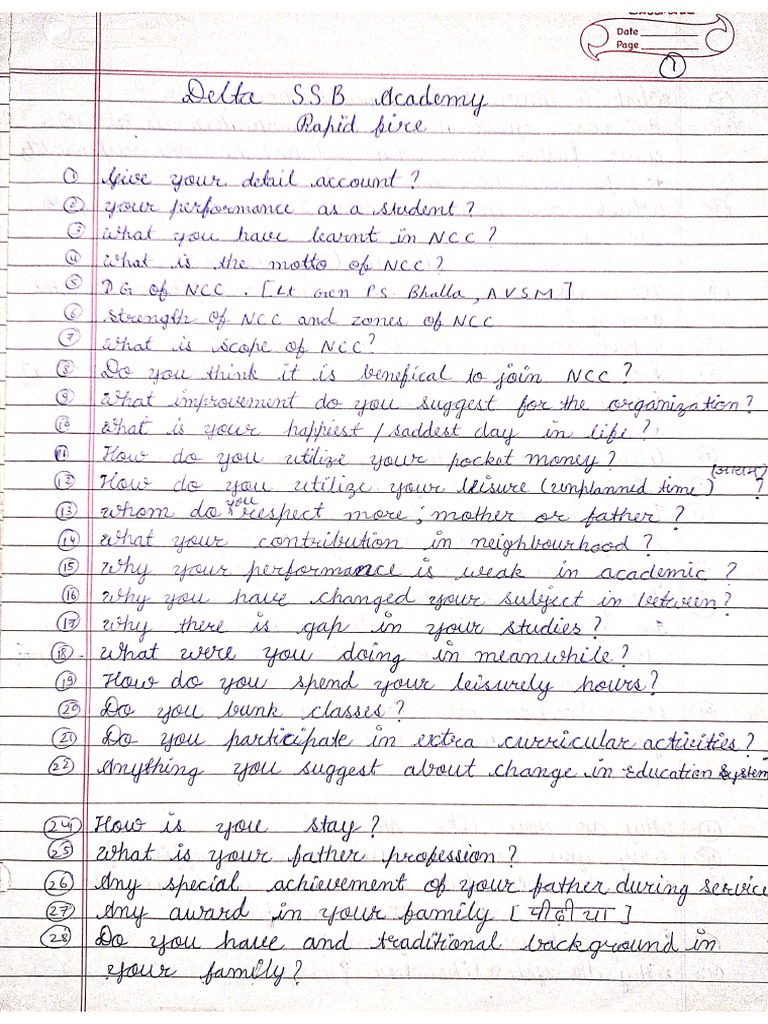 CLASSMATE
Date
Page
1
Delta SSB Academy
Rapid fire
1 Give your detail account?
2 your performance as a student?
3 What you have learnt in NCC?
4 What is the motto of NCC?
5 DG of NCC. [Lt Gen P.S. Bhalla, AVSM]
6 Strength of NCC and zones of NCC
7 What is scope of NCC?
8 Do you think it is benefical to join NCC?
9 What improvement do you suggest for the organization?
10 What is your happiest/saddest day in life?
11 How do you utilize your pocket money?
(आराम)
12 How do you utilize your leisure (unplanned time) ?
13 whom do you respect more; mother or father?
14 What your contribution in neighbourhood?
15 Why your performance is weak in academic ?
16 Why you have changed your subject in between?
17 why there is gap in your studies?
18 What were you doing in meanwhile?
19 How do you spend your leisurely hours?
20 Do you bunk classes?
21 Do you participate in extra curricular activities?
22 Anything you suggest about change in Education System
24 How is you stay?
25 What is your father profession?
26 Any special achievement of your father during service
27 Any award in your family [पीढ़ीया]
28 Do you have and traditional background in
your family?